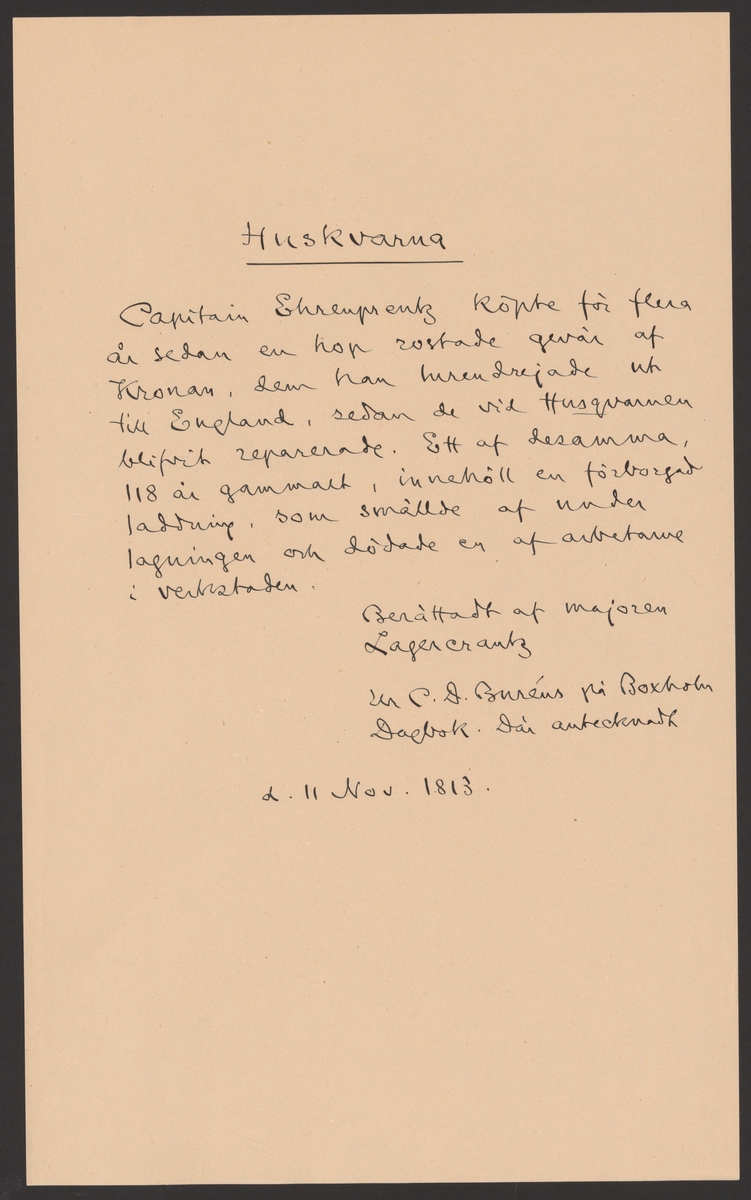 Huskvarna
Capitain Ehrenprentz köpte för flera
år sedan en hop rostade gevär af
Kronan, dem han lurendrejade ut
till England, sedan de vid Husqvarnen
blifvit reparerade. Ett af desamma,
118 år gammalt, innehöll en förborgad
laddning, som smällde af under
lagningen och dödade en af arbetarne
i verkstaden.
Berättadt af majoren
Lagercrantz
Ur C. D. Buréns på Boxholm
Dagbok. Där antecknadt
d. 11 Nov. 1813.